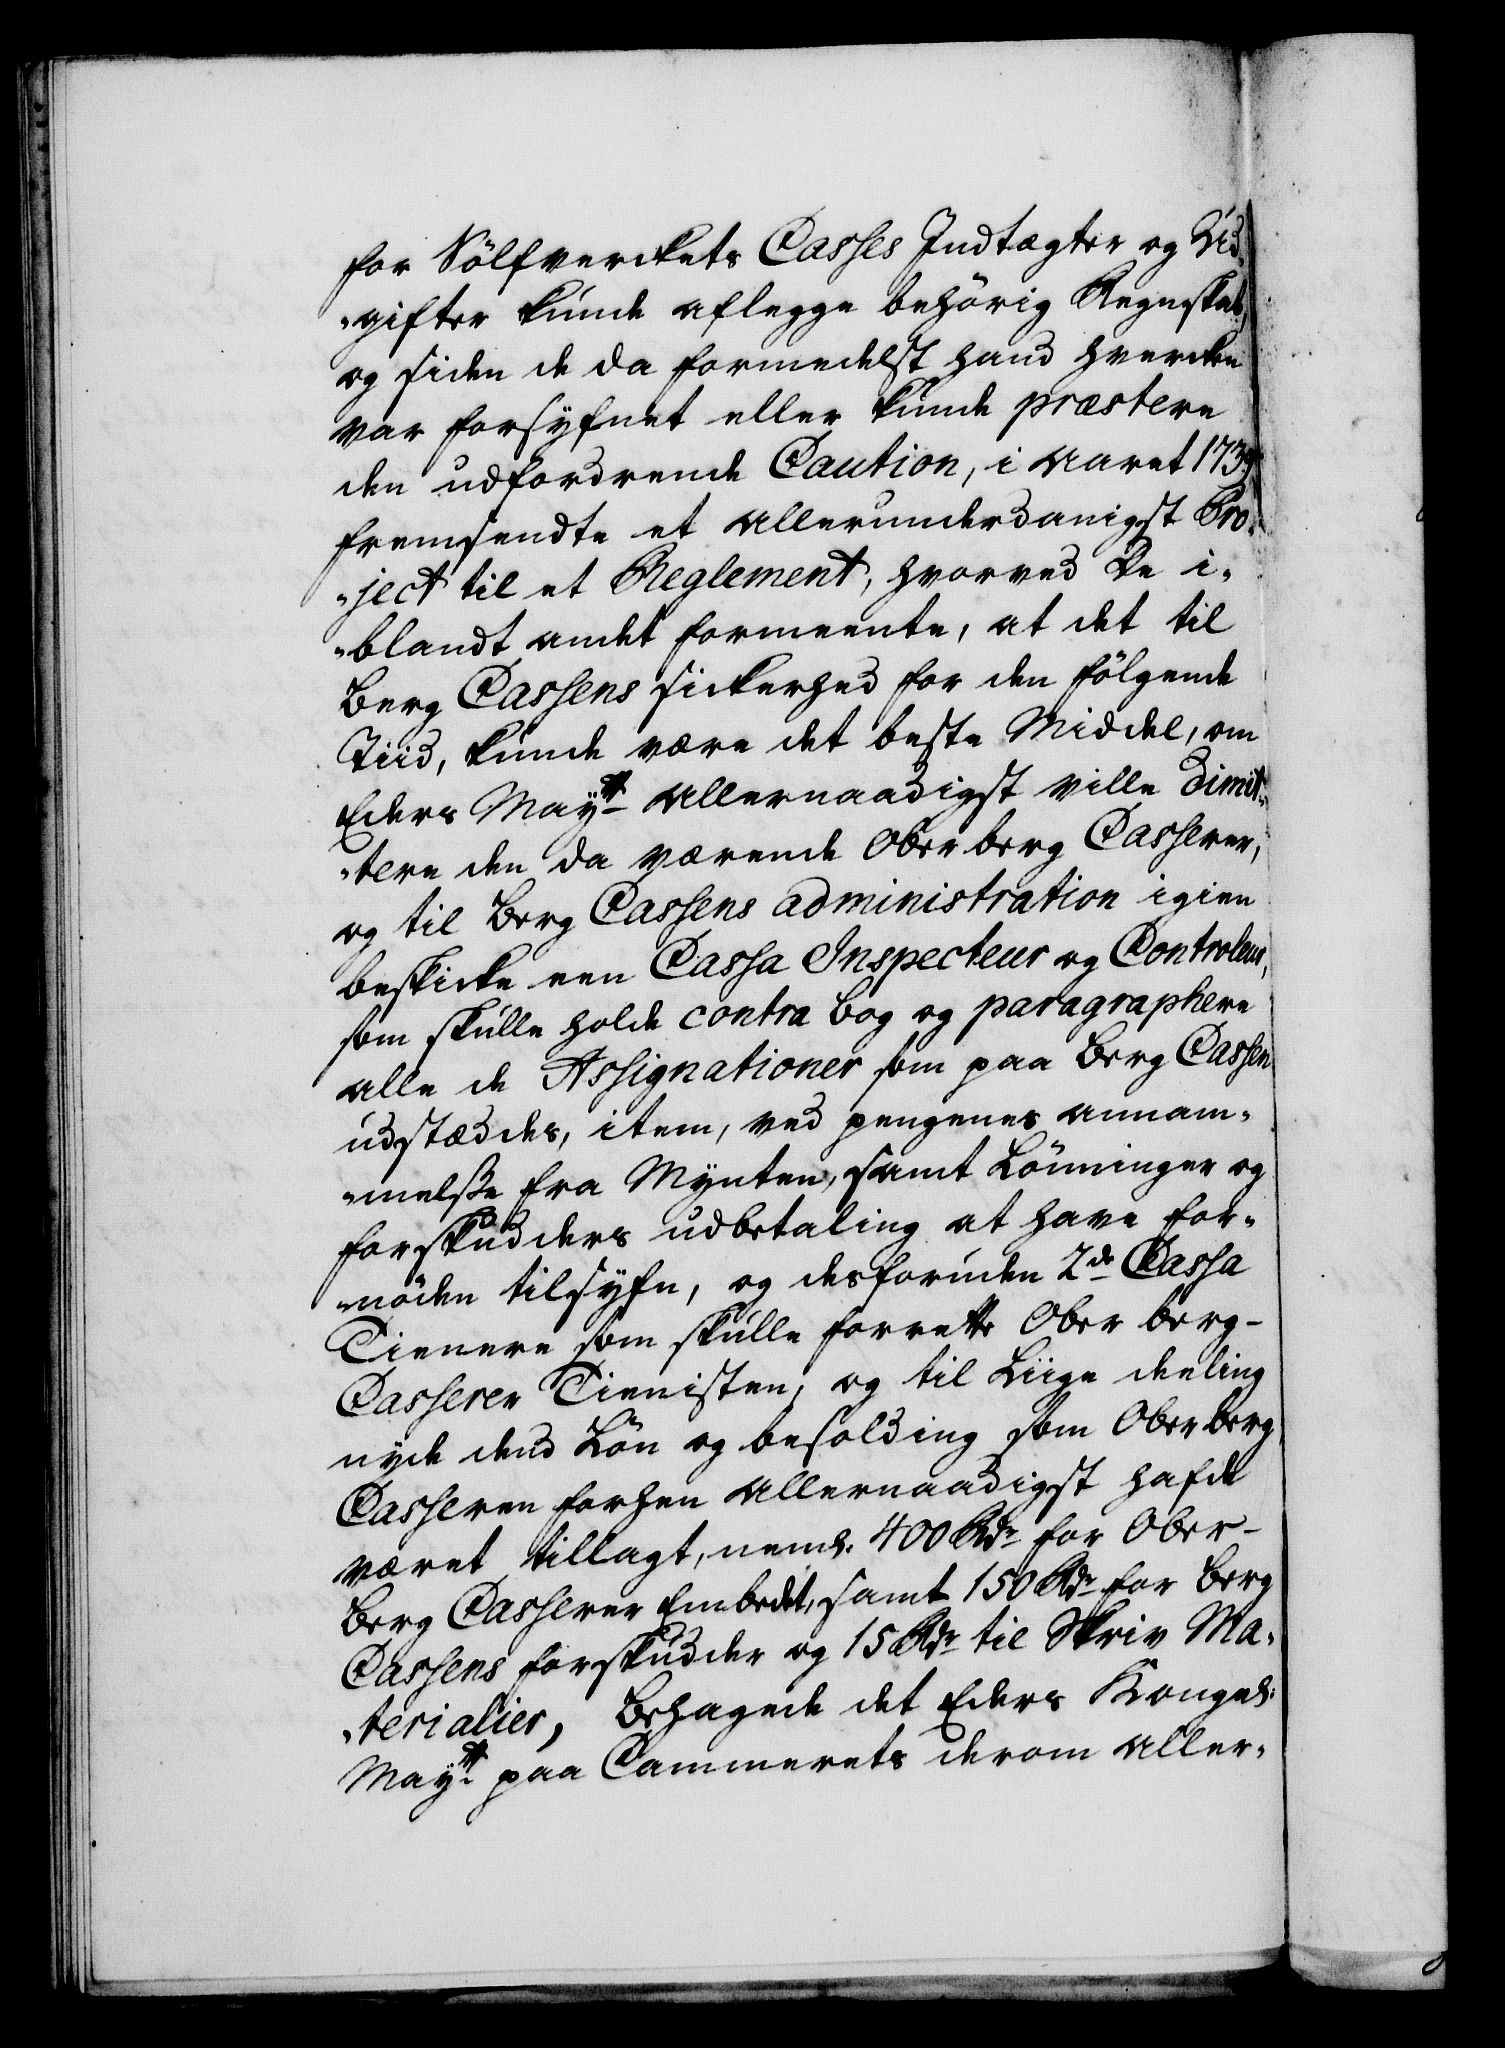 for Sölfverckets Casses Indtægter og Ud-
-gifter kunde aflegge behörig Regnskab,
og siden de da formedelst hand hvercken
var forsyfnet eller kunde præstere
den udfordrende Caution, i Aaret 1739
fremsendte et allerunderdanigst Pro-
-ject til et Reglement, hvorved De i-
-blandt andet formeente, at det til
Berg Cassens sickerhed for den fölgende
Tiid, kunde være det beste Middel, om
Eders Mayᵗᵗ allernaadigst ville dimit-
-tere den da værende Oberberg Casserer,
og til Berg Cassens administration igien
beskicke een Cassa Inspecteur og Controleur,
som skulle holde contra bog og paragraphere
alle de Assignationer som paa Berg Cassen
udstæddes, item, ved pengenes annam-
-melsse fra Mynten, samt Lönninger og
forskudders udbetaling at have for-
-nöden tilsyfn, og desforuden 2de Cassa
Tienere som skulle forrette Ober berg-
Casserer Tienisten, og til Liige deeling
nyde dend Lön og besolding som Oberberg
Casseren forhen allernaadigst hafde
været tillagt, neml. 400 Rdr for Ober-
berg Casserer Embedet, samt 150 Rdr for Berg
Cassens forskudder og 15 Rdr til Skriv Ma-
-terialier, Behagede det Eders Kongel:
Mayᵗᵗ paa Cammerets derom aller-